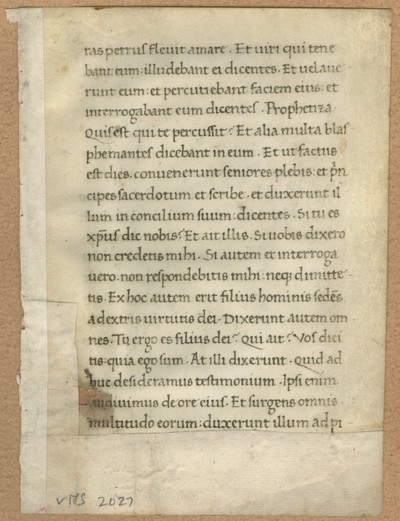 ras petrus flevit amare. Et viri qui tene
bant eum: illudebant ei dicentes. Et velave
runt eum: et percutiebant faciem eius: et
interrogabant eum dicentes. Prophetiza
Quis est qui te percussit? Et alia multa blas
phemantes dicebant in eum. Et ut factus
est dies. convenerunt seniores plebis: et pn̄
cipes sacerdotum et scribe. et duxerunt il
lum in concilium suum: dicentes. Si tu es
xp̄us dic nobis? Et ait illis. Si vobis dixero
non credetis mihi. Si autem et interroga
vero: non respondebitis mihi: neq; dimitte
tis. Ex hoc autem erit filius hominis sedēs
a dextris virtutis dei. Dixerunt autem om
nes. Tu ergo es filius dei? Qui ait? Vos dici
tis: quia ego sum. At illi dixerunt. Quid ad
huc desideramus testimonium. Ipsi enim
audivimus de ore eius. Et surgens omnis
multitudo eorum: duxerunt illum ad pi
VMS 2027